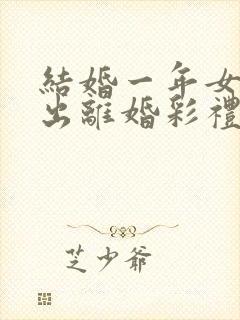 結婚一年女
出離婚彩禮
芝少爺